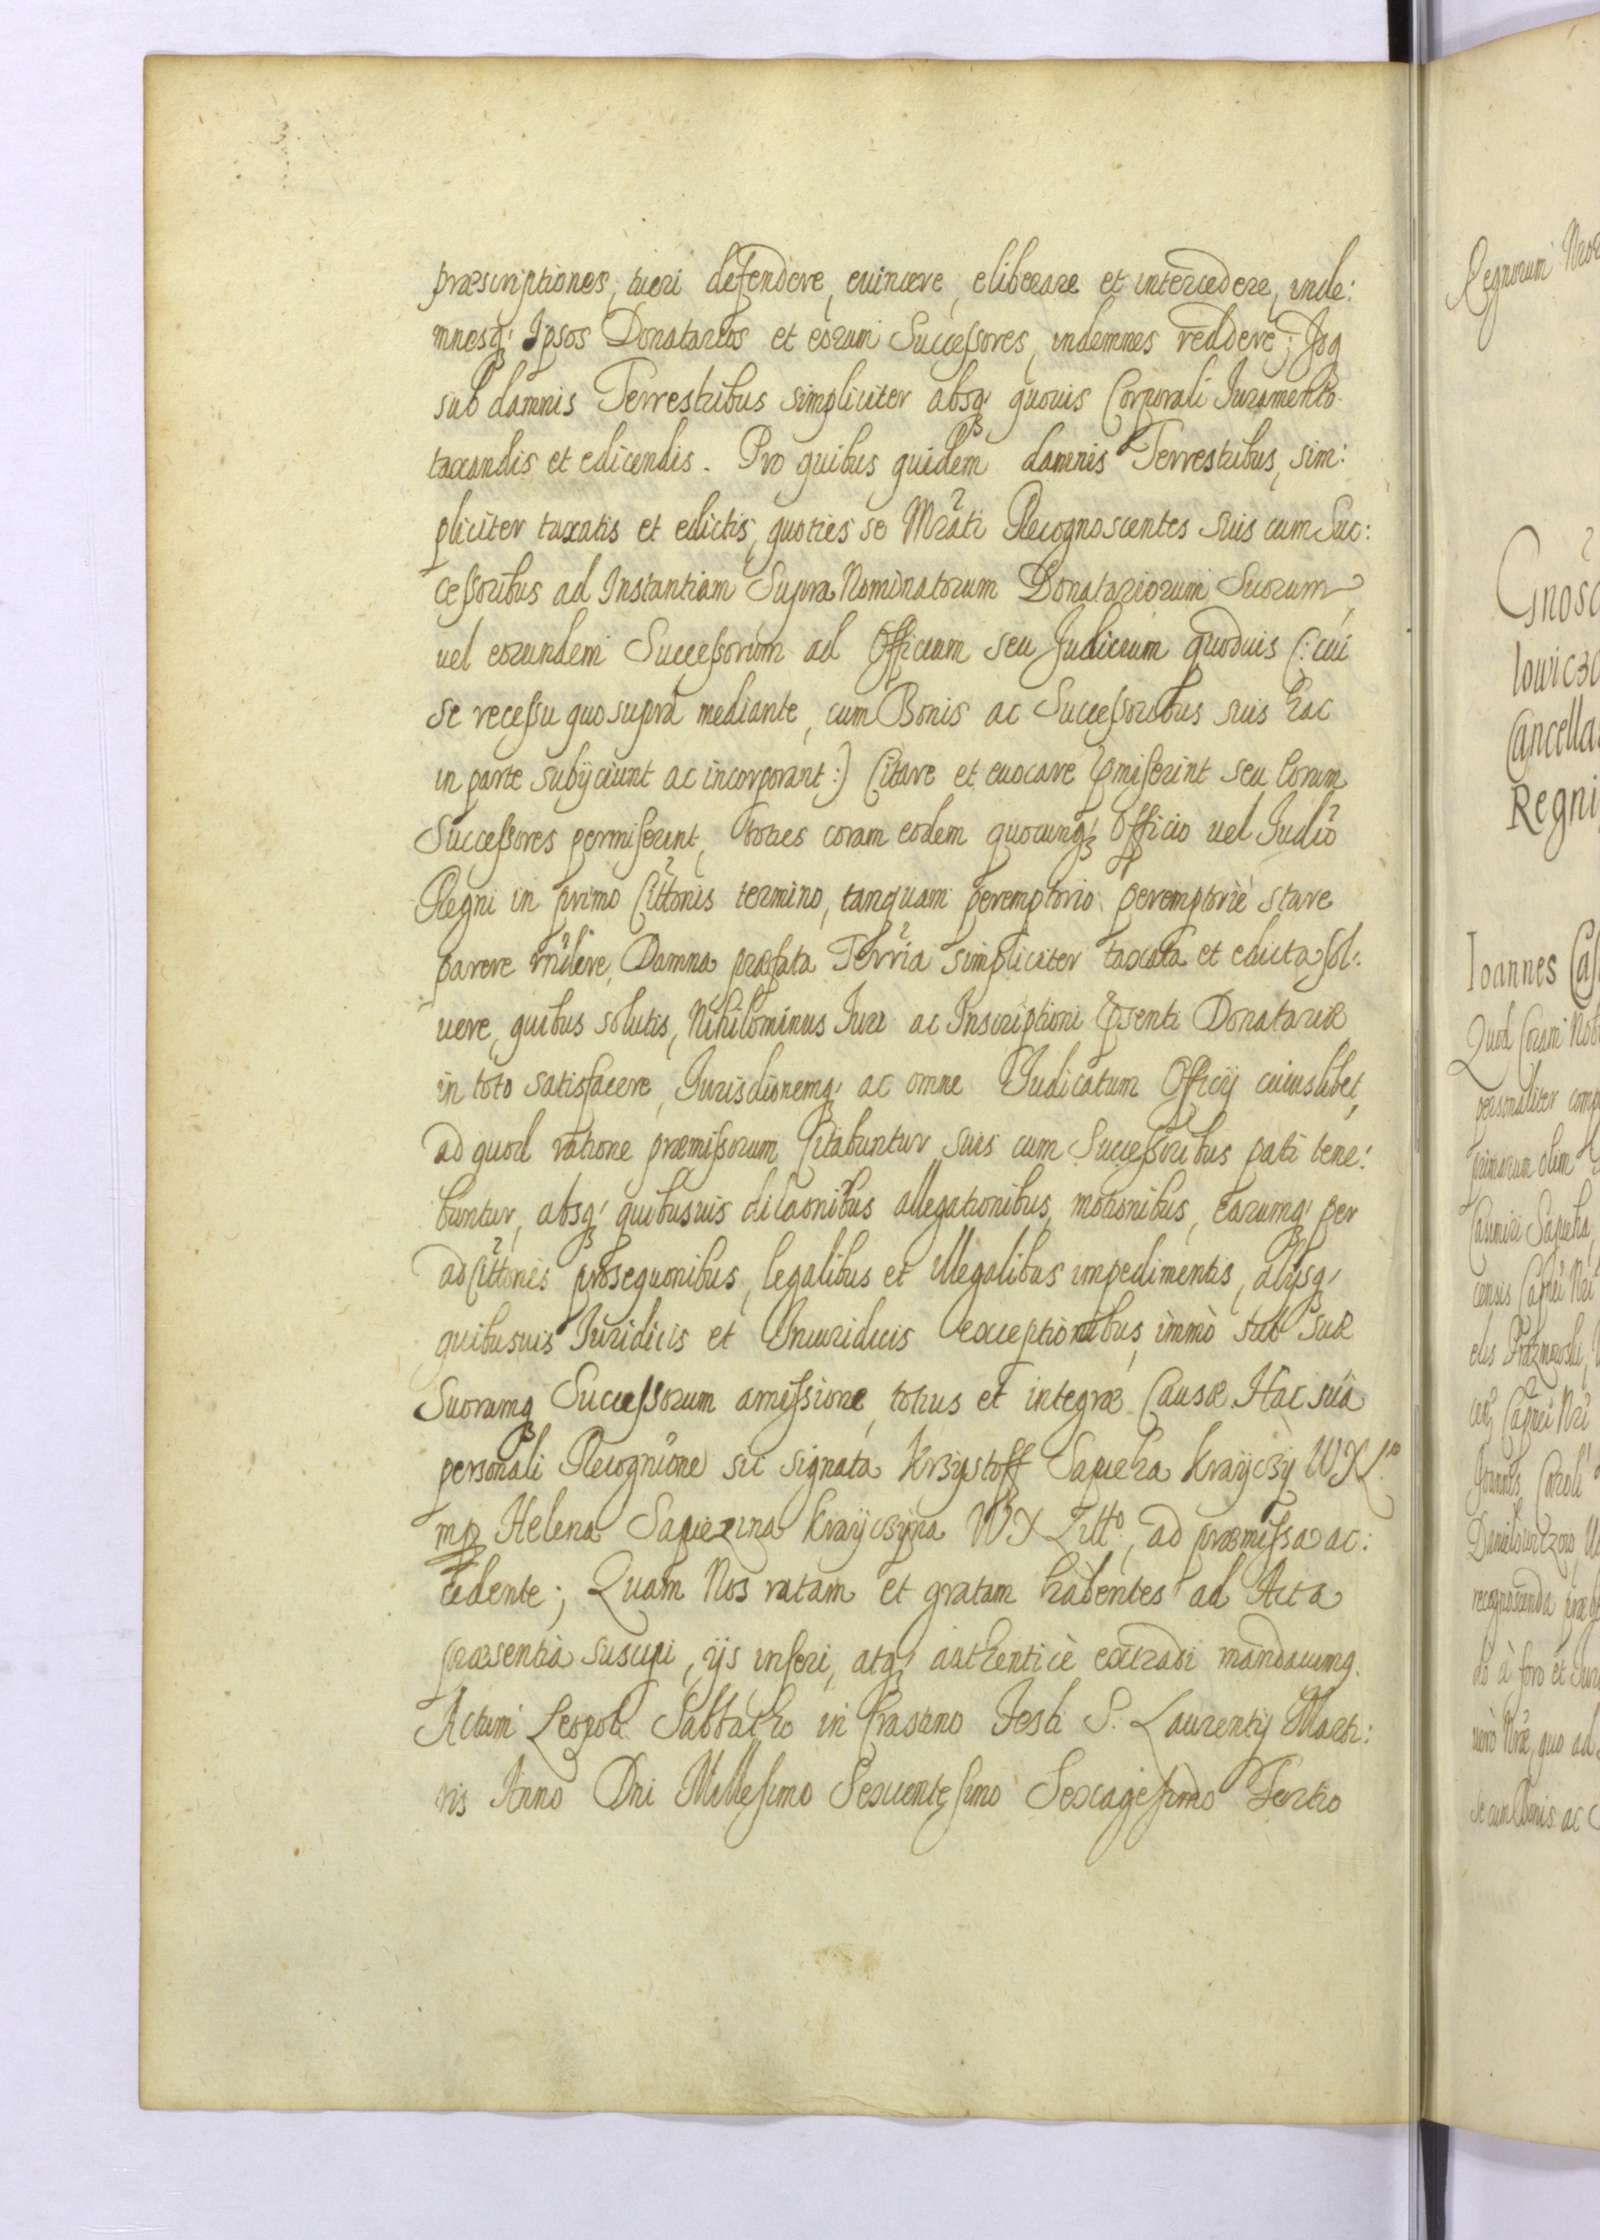 præscriptiones, tueri defendere, euincere, eliberare et intercedere, inde:
mnesq; Ipsos Donatarios et eorum Successores, indemnes reddere; Idq
sub damnis Terrestribus simpliciter absq; quouis Corporali Iuramento
taxandis et edicendis. Pro quibus quidem damnis Terrestribus, sim:
pliciter taxatis et edictis, quoties se Mrãti Recognoscentes suis cum Suc:
cessoribus ad Instantiam Supra Nominatorum Donatariorum Suorum,
uel eorundem Successorum ad Officium seu Iudicium quoduis (: cui
se recessu quo supra mediante, cum Bonis ac Successoribus suis hac
in parte subijciunt ac incorporant :) Citare et euocare pmiserint seu Eorum
Successores permiserint, toties coram eodem quocunq; Officio uel Iudiõ
Regni in primo Cittõnis termino, tanquam peremptorio peremptoriè stare
parere rñdere, Damna præfata Terria simpliciter taxata et edicta sol:
uere, quibus solutis, Nihilominus Iuri ac Inscriptioni psenti Donatariæ
in toto satisfacere, Iurisdionemq; ac omne Iudicatum Officij cuiuslibet,
ad quod ratione præmissorum Citabuntur suis cum Successoribus pati tene:
buntur, absq; quibusuis dilaonibus allegationibus, motionibus, earumq; per
adCittõnes prosequonibus, legalibus et illegalibus impedimentis, alijsq;
quibusuis Iuridicis et Iniuridicis exceptionibus, immò sub suæ
Suorumq Successorum amissione, totius et integræ Causæ. Hac suã
personali Recogniõne sic signata Krzysztoff Sapieha Krayczy WXL.
mp Helena Sapiezina Krayczyna WX Litto:, ad præmissa ac:
cedente; Quam Nos ratam et gratam habentes ad Acta
præsentia suscipi, ijs inseri, atq; authenticè extradi mandauimq.
Actum Leopoli Sabbatho in Crastino Festi S. Laurentij Marti:
ris Anno Dni Millesimo Sexcentesimo Sexagesimo Tertio
Regnorum
Gnosc
louicz
Cancella
Regni
Ioannes Cas
Quod Coram Nob
personaliter comp
primorum olim
Casimiri Sapieha,
censis Capnei Nri
Capnei Nri
Ioannes Caroli
recognoscenda
dò à foro et Iuri
uerò Nræ, quo ad
se cum Bonis ac